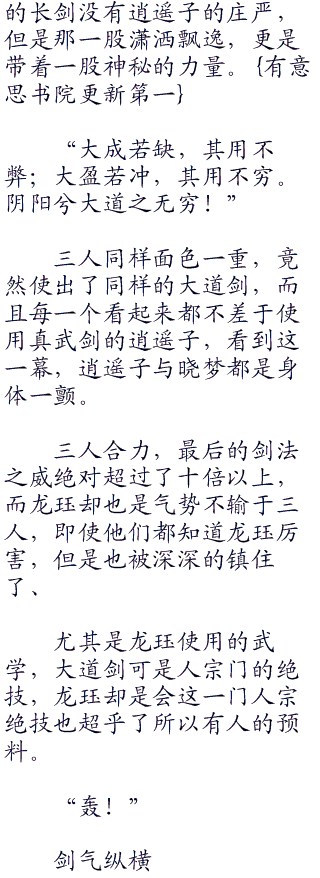 的长剑没有逍遥子的庄严，
但是那一股潇洒飘逸，更是
带着一股神秘的力量。{有意
思书院更新第一}
“大成若缺，其用不
弊；大盈若冲，其用不穷。
阴阳兮大道之无穷！”
三人同样面色一重，竟
然使出了同样的大道剑，而
且每一个看起来都不差于使
用真武剑的逍遥子，看到这
一幕，逍遥子与晓梦都是身
体一颤。
三人合力，最后的剑法
之威绝对超过了十倍以上，
而龙珏却也是气势不输于三
人，即使他们都知道龙珏厉
害，但是也被深深的镇住
了、
尤其是龙珏使用的武
学，大道剑可是人宗门的绝
技，龙珏却是会这一门人宗
绝技也超乎了所以有人的预
料。
“轰！”
剑气纵横